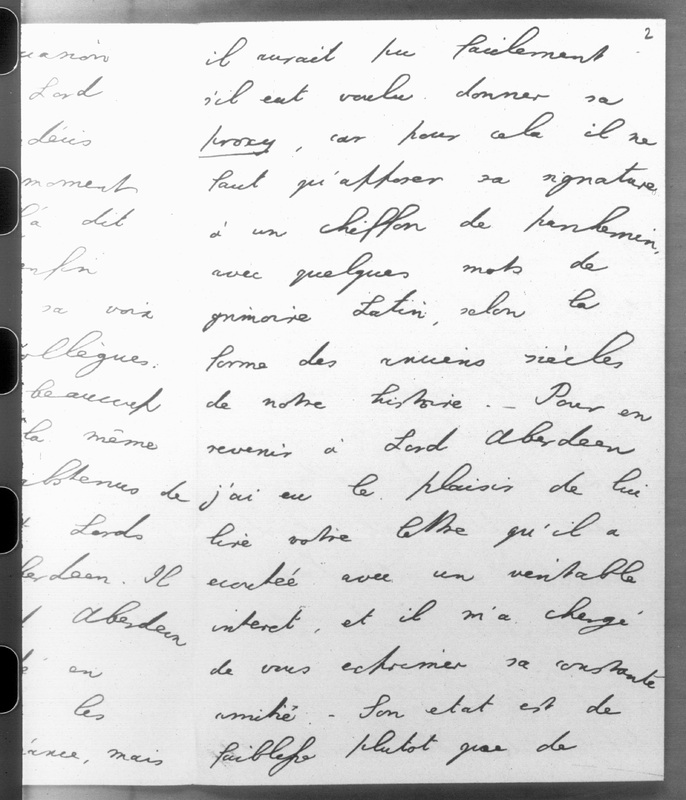 2
il aurait pu facilement
s'il eut voulu donner sa
proxy, car pour cela il ne
faut qu'apposer sa signature
à un chiffon de parchemin,
avec quelques mots de
grimoire Latin, selon la
forme des anciens siècles
de notre histoire. — Pour en
revenir à Lord Aberdeen
j'ai eu le plaisir de lui
lire votre lettre qu'il a
ecoutéé avec un veritable
interet, et il m'a chargé
de vous exprimer sa constante
amitié - Son etat est de
faiblesse plutot que de
Lord
moment
dit
enfin
sa voix
collègues.
beaucoup
la même
abstenus de
Lords
berdeen. Il
Aberdeen
en
les
mais